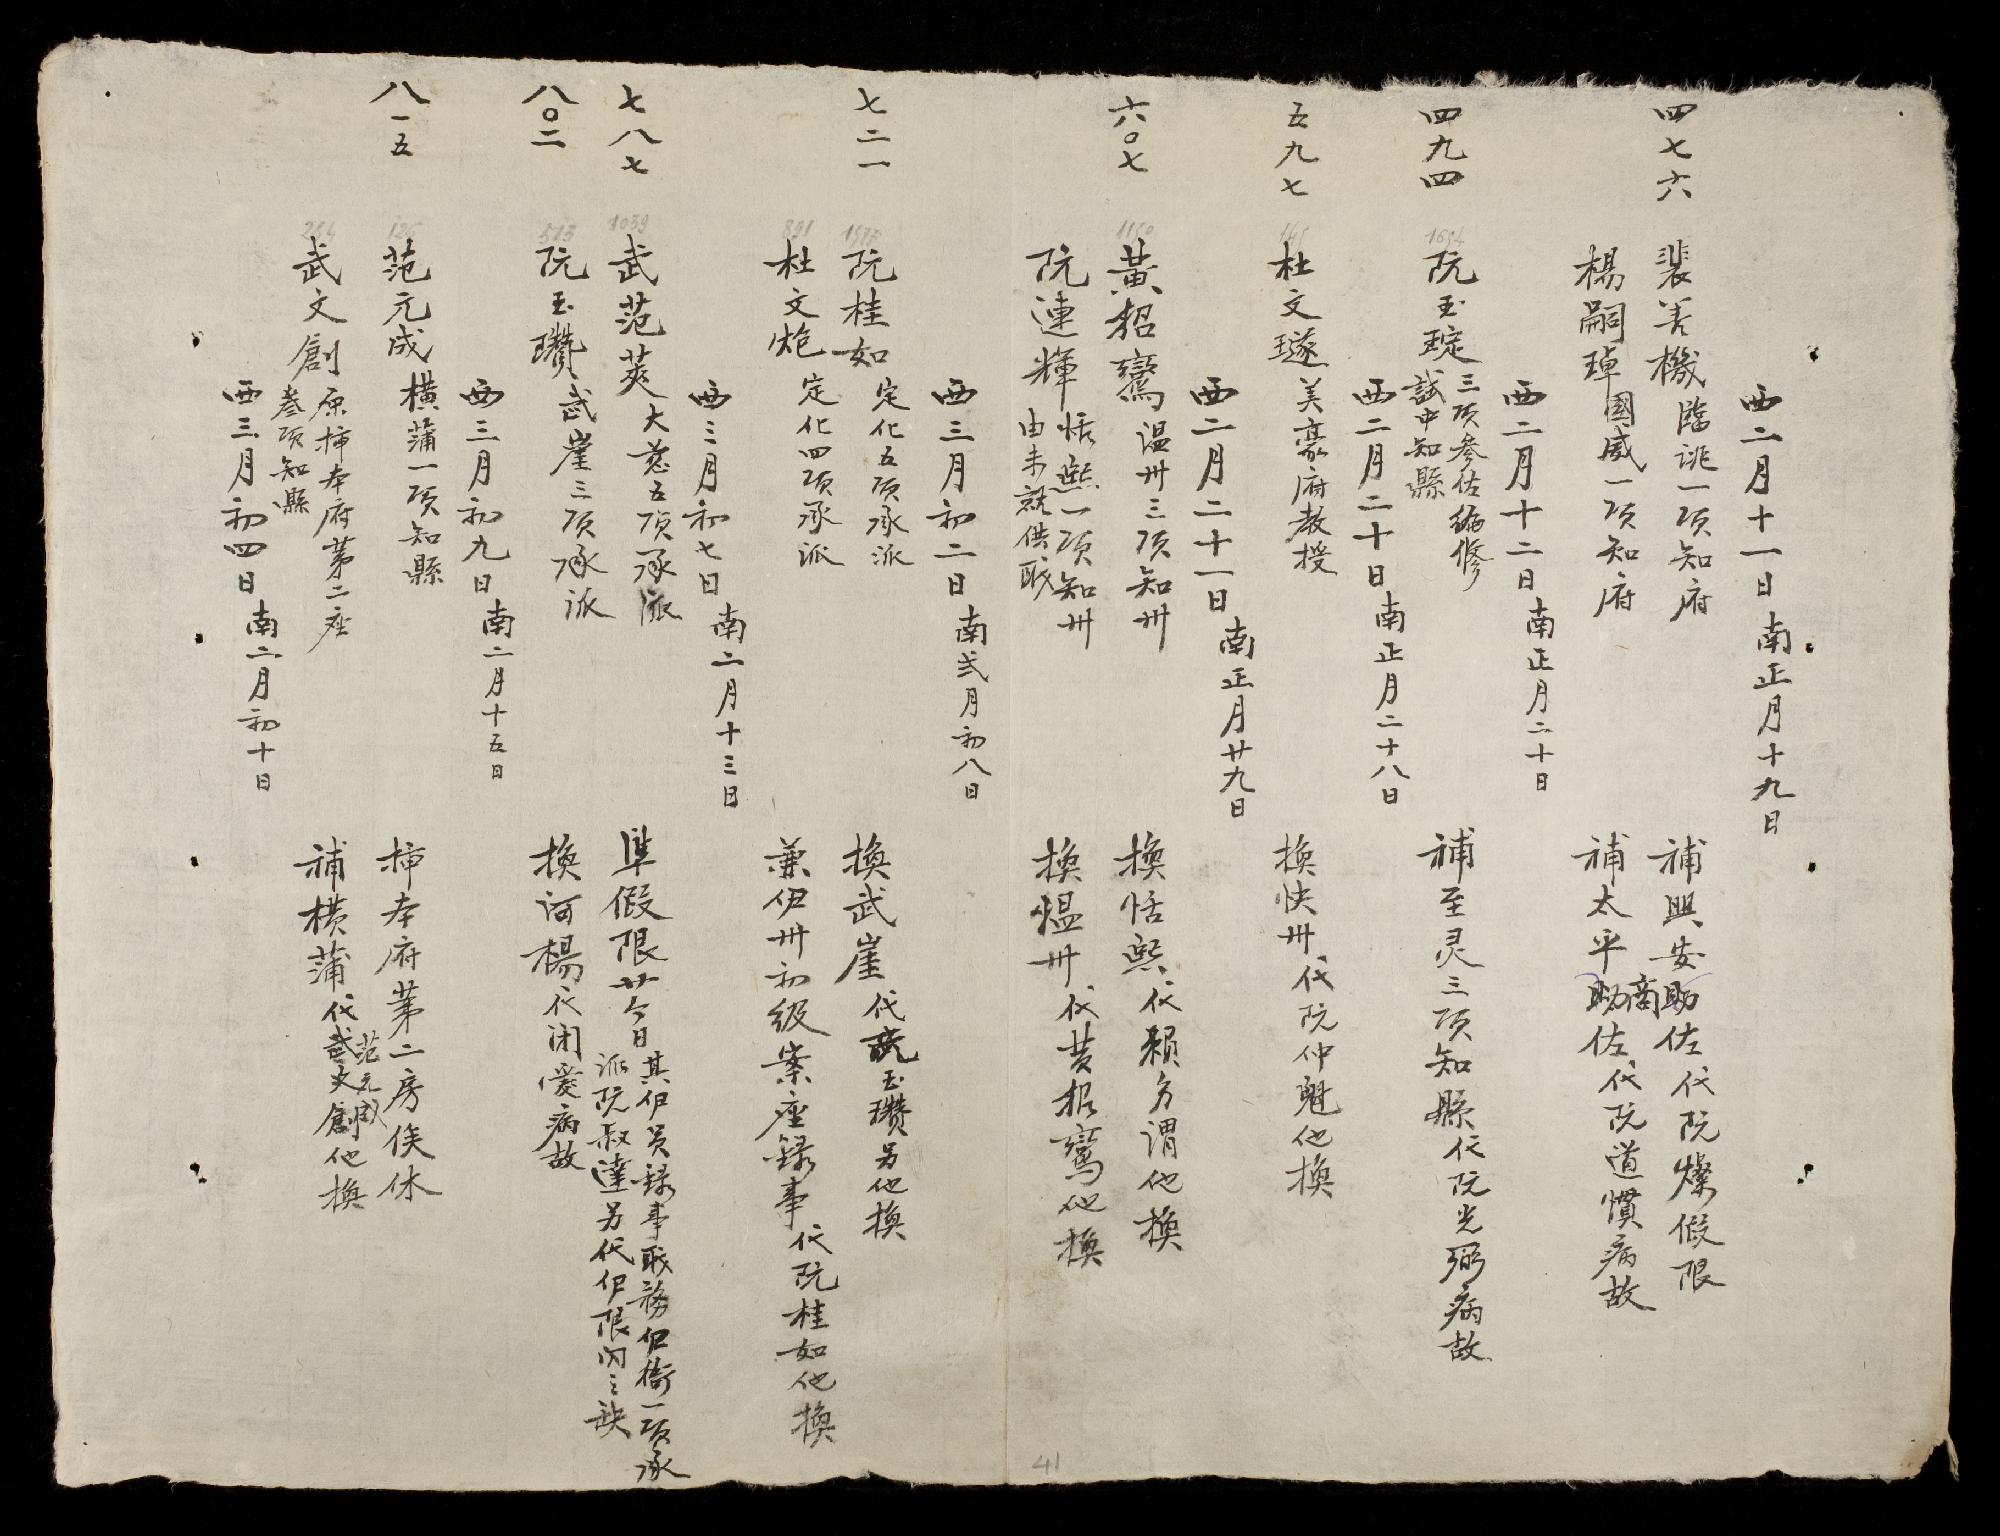 西二月十一日南正月十九日
四七六
裴善機臨洮一項知府
補興安商助佐代阮燦假限
楊嗣琸國威一項知府
補太平商助佐代阮道慣病故
西二月十二日南正月二十日
四九四
1694
阮玉琔三項參佐編修
試中知縣
補至灵三項知縣代阮光弼病故
西二月二十日南正月二十八日
五九七
杜文璲美豪府教授
換快州代阮仲魁他換
西二月二十一日南正月廿九日
六〇七
1150
黃招鸞温州三項知州
換恬熙代賴多謂他換
阮連輝恬熙一項知州
由未就供職
換温州代黃招鸞他換
西三月初二日南弍月初八日
七二一
阮桂如定化五項承派
換武崖代阮玉瓚另他換
891
杜文炮定化四項承派
兼伊州初級案座錄事代阮桂如他換
西三月初七日南二月十三日
七八七
1039
武范莢大慈五項承派
準假限廿今日其伊員錄事職務伊衙一項承
派阮叔達另代伊限内之缺
八〇二
513
阮玉瓚武崖三項承派
換河楊代閉愛病故
西三月初九日南二月十五日
八一五
126
范元成横蒲一項知縣
揷本府第二房俟休
264
武文創原揷本府第二座
叁項知縣
補横蒲代范元成他換
西三月初四日南二月初十日
41